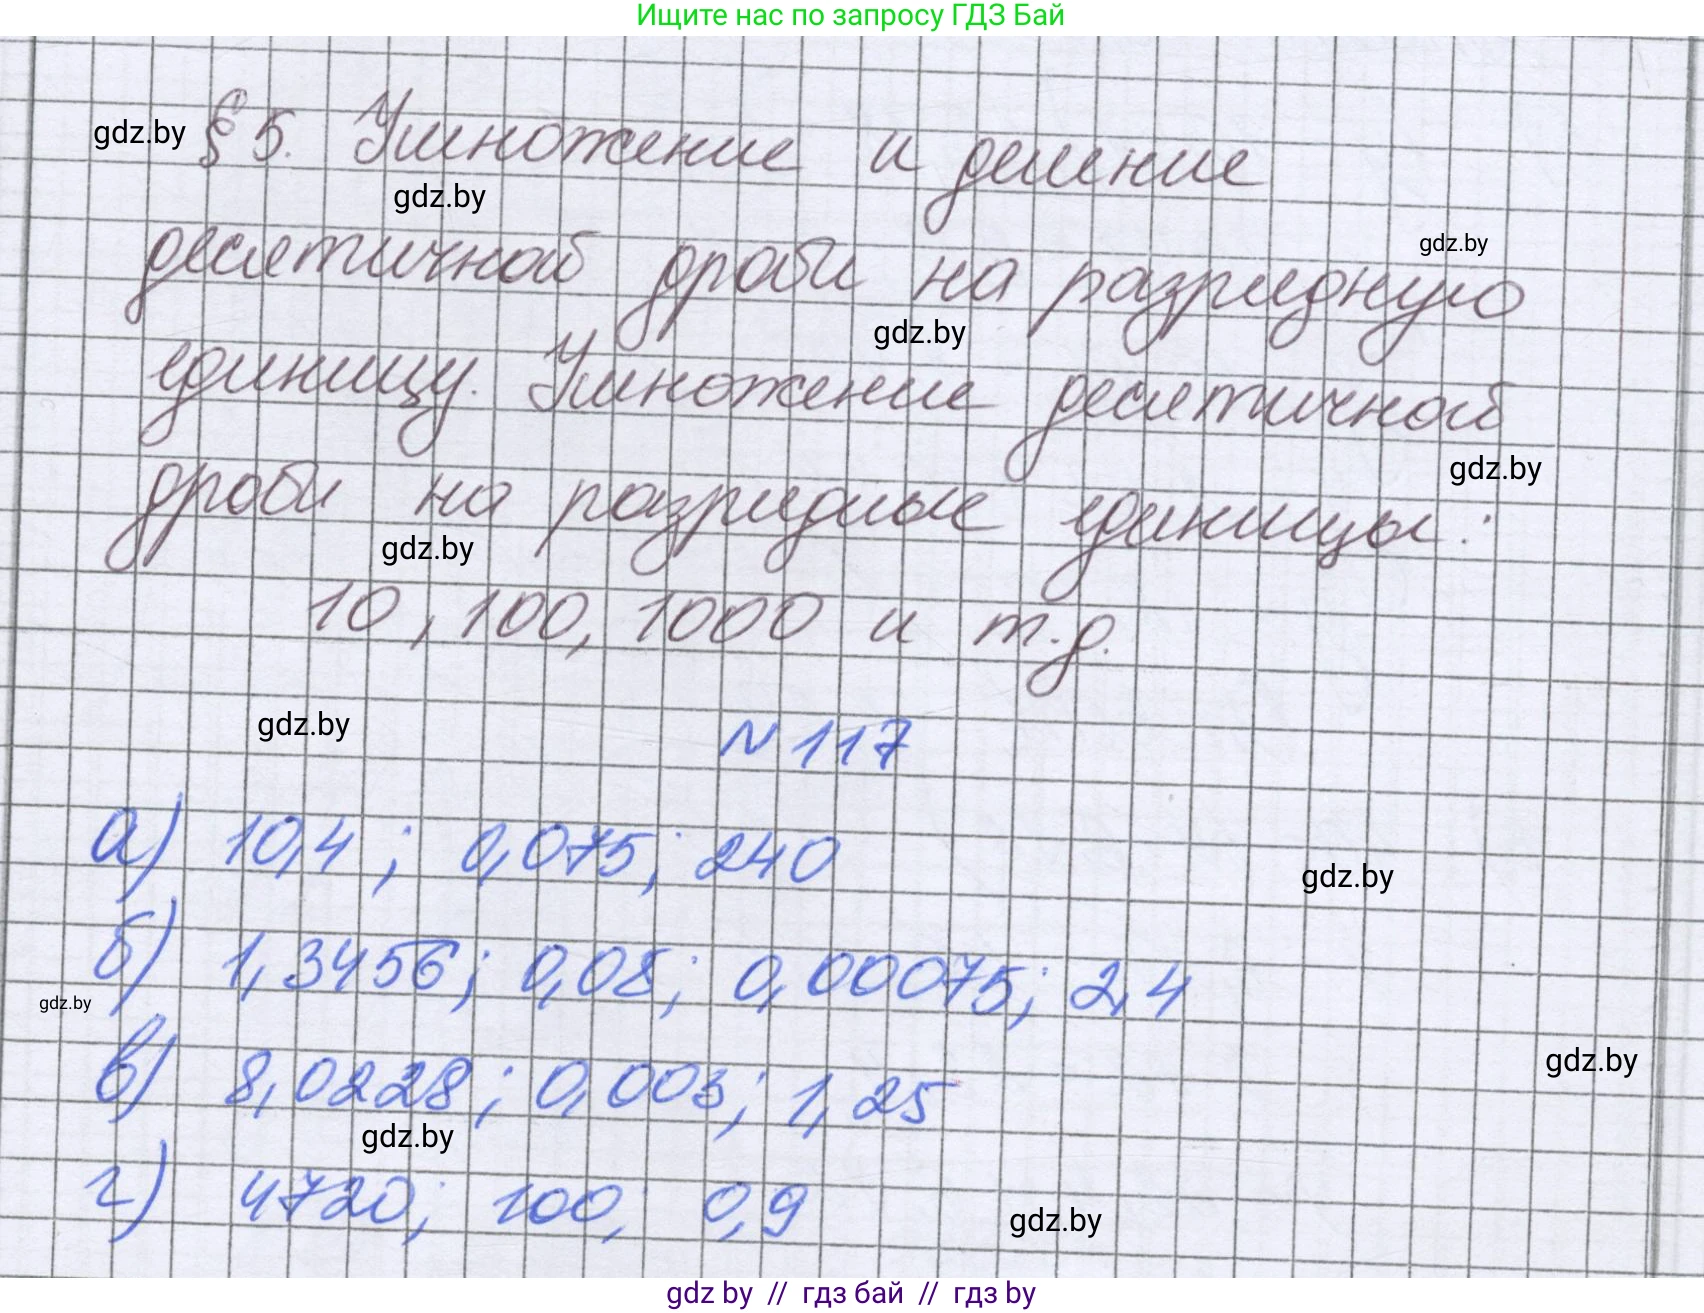 Ищите нас по запросу ГДЗ Бай
gdz.by § 5. Умножение и деление
gdz.by
десятичной дроби на разрядную
gdz.by
gdz.by
единицу. Умножение десятичной
gdz.by
дроби на разрядные единицы:
gdz.by
10, 100, 1000 и т.д.
gdz.by
N 117
а) 10,4; 0,075; 240
gdz.by
б) 1,3456; 0,08; 0,00075; 2,4
gdz.by
gdz.by
в) 8,0228; 0,003; 1,25
gdz.by
г) 4720; 100; 0,9
gdz.by
gdz.by // гдз бай // гдз by